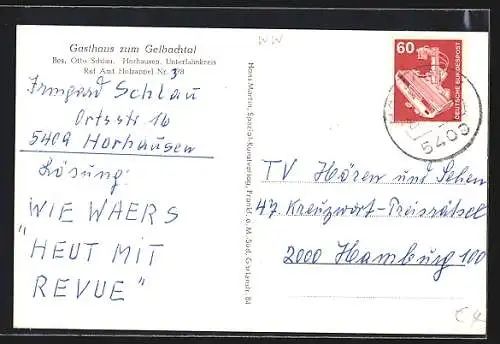 Gasthaus zum Gelbachtal
Bes. Otto Schön, Horhausen, Unterlahnkreis
Ruf Amt Holzappel Nr. 378
Irmgard Schlau
Ortsstr 16
5409 Horhausen
Lösung:
WIE WAERS
"HEUT MIT
REVUE"
Hans Martin, Spezial-Kunstverlag, Frankf. a. M.-Süd, Gartenstr. 84
WW
60
DEUTSCHE BUNDESPOST
5400
TV Hören und Sehen
47. Kreuzwort-Preisrätsel
2000 Hamburg 100